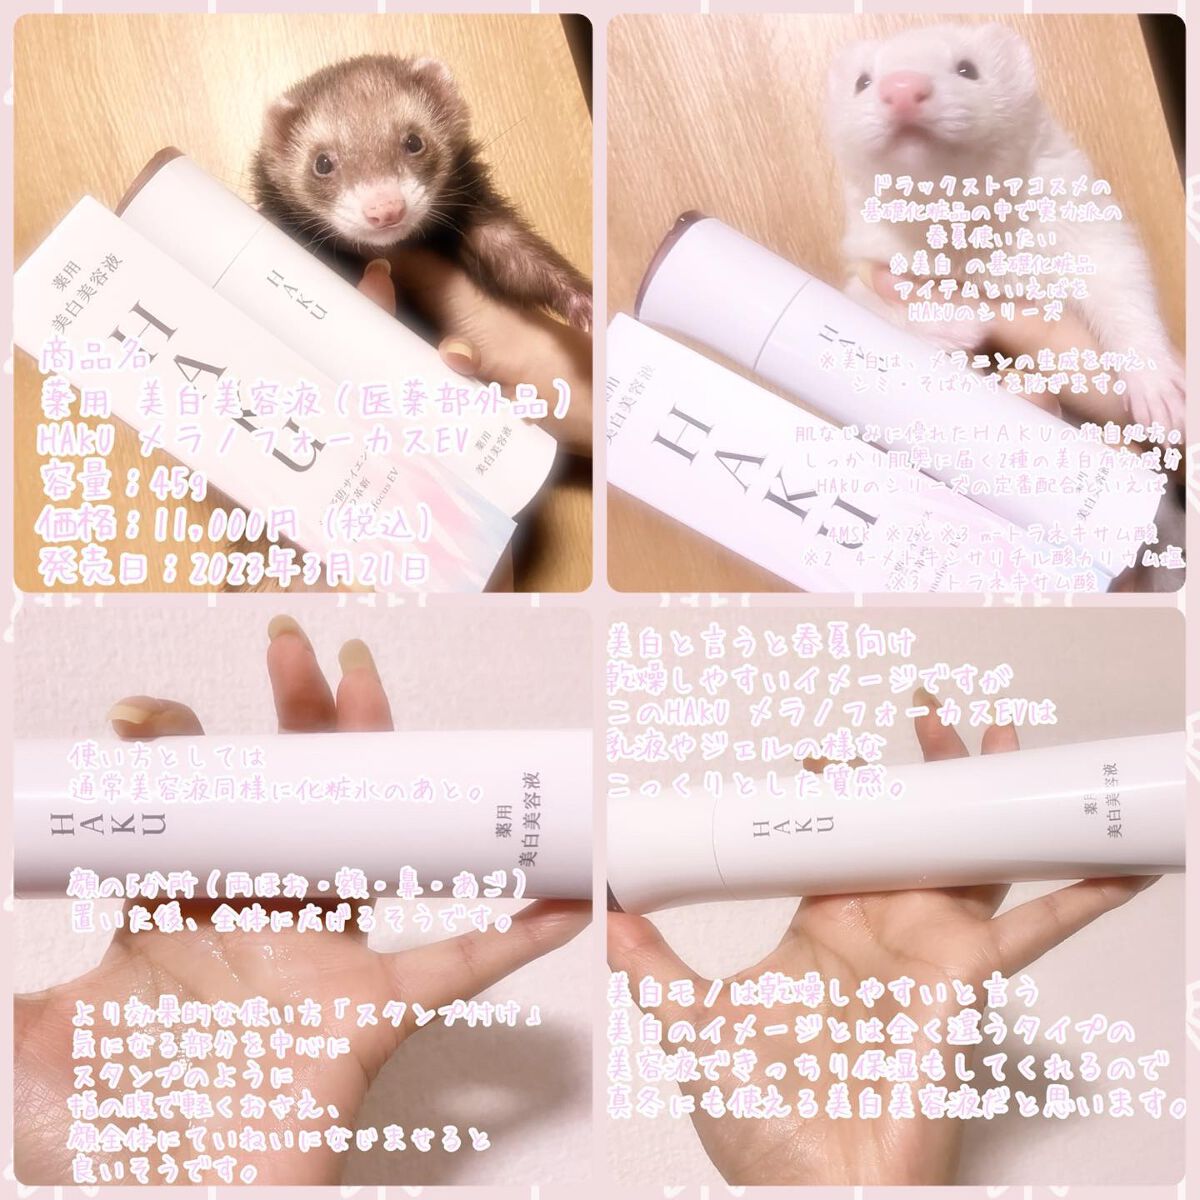 薬用
美白美容液
HAKU
HAKU
薬用
美白美容液
商品名
薬用 美白美容液(医薬部外品)
HAKU メラノフォーカスEV
容量;45g
価格;11,000円(税込)
発売日;2023年3月21日
ドラックストアコスメの
基礎化粧品の中で実力派の
春夏使いたい
※美白 の基礎化粧品
アイテムといえばを
HAKUのシリーズ
※美白は、メラニンの生成を抑え、
シミ・そばかすを防ぎます。
肌なじみに優れたHAKUの独自処方。
しっかり肌奥に届く2種の美白有効成分
HAKUのシリーズの定番配合といえば
4MSK ※2と※3 m-トラネキサム酸
※2 4-メトキシサリチル酸カリウム塩
※3 トラネキサム酸
HAKU
HAKU
美白美容液
使い方としては
通常美容液同様に化粧水のあと。
HAKU
薬用
美白美容液
顔の5か所(両ほお・額・鼻・あご)
置いた後、全体に広げるそうです。
より効果的な使い方「スタンプ付け」
気になる部分を中心に
スタンプのように
指の腹で軽くおさえ、
顔全体にていねいになじませると
良いそうです。
美白と言うと春夏向け
乾燥しやすいイメージですが
このHAKU メラノフォーカスEVは
乳液やジェルの様な
こっくりとした質感。
HAKU
薬用
美白美容液
美白モノは乾燥しやすいと言う
美白のイメージとは全く違うタイプの
美容液できっちり保湿もしてくれるので
真冬にも使える美白美容液だと思います。